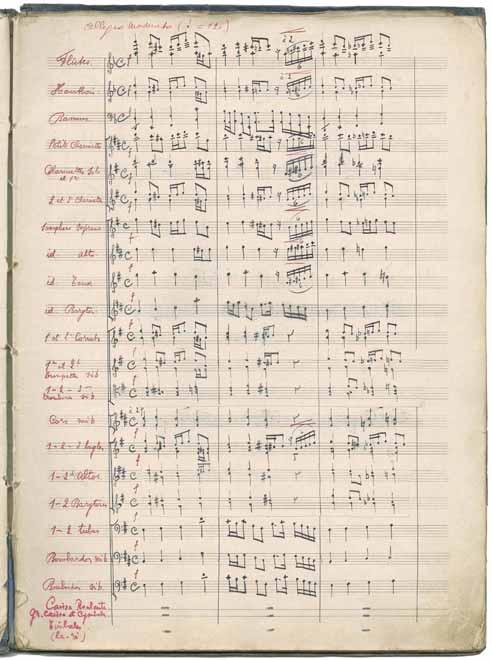 Allegro Moderato
à 2
Flûtes
à 2
Hautbois
Bassons
Petite Clarinette
Clarinettes Solo
et 1re
2 et 3 Clarinette
Saxophone Soprano
id. Alto
id. Tenor
id. Baryton
1 et 2 Cornets
1re et 2e
trompette
1-2-3
trombone
Cors mib
1-2-3 bugles
1-2 Altos
1-2 Barytons
1-2 tubas
Bombardos mib
Bombardos sib
Caisse Roulante
gr. caisse et Cymbale
Timbales
(la-ré)